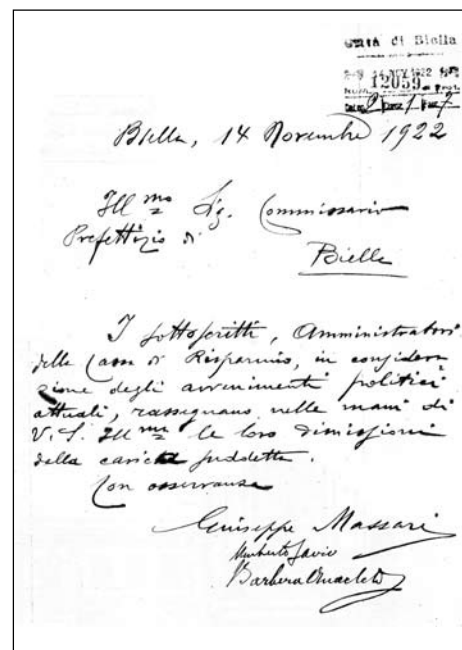 Città di Biella
14 NOV 1922
12059
Biella, 14 Novembre 1922
Ill mo Sig. Commissario
Prefettizio di
Biella
I sottoscritti, Amministratori
della Cassa di Risparmio, in considera
zione degli avvenimenti politici
attuali, rassegnano nelle mani di
V. S. Ill ma le loro dimissioni
della carica suddetta.
Con osservanza
Giuseppe Massari
Umberto Savio
Barbera Anacleto